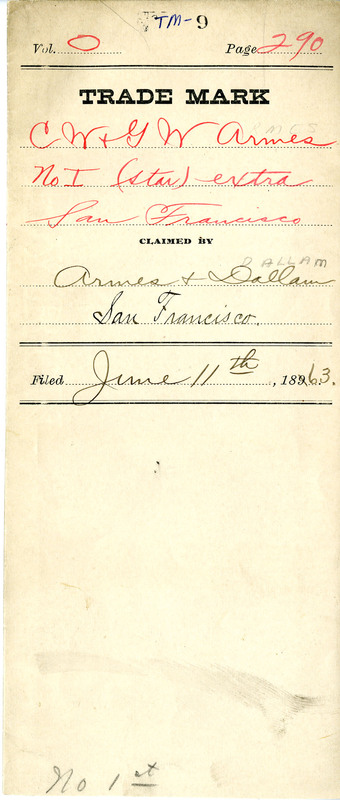 TM- 9
Vol. O Page 290
TRADE MARK
C W & G W Armes
No I (star) extra
San Francisco
CLAIMED BY
DALLAM
Armes & Dallam
San Francisco.
Filed June 11th, 18963.
No 1 st